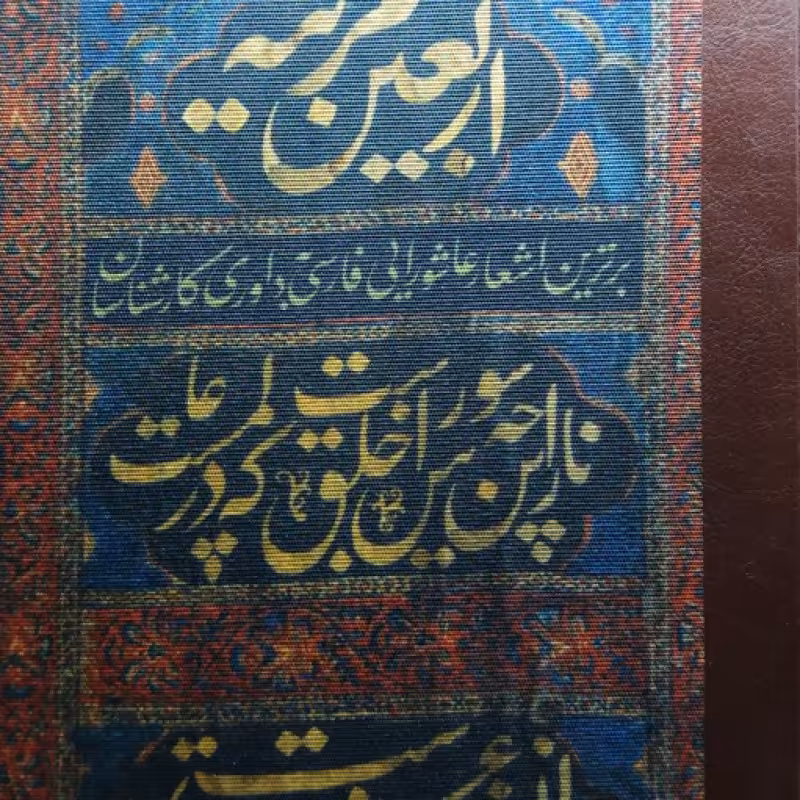 اربعین
برترین اشعار عاشورایی فارسی بداوری کارشناسان
باز این چه شورش است که در خلق عالم است